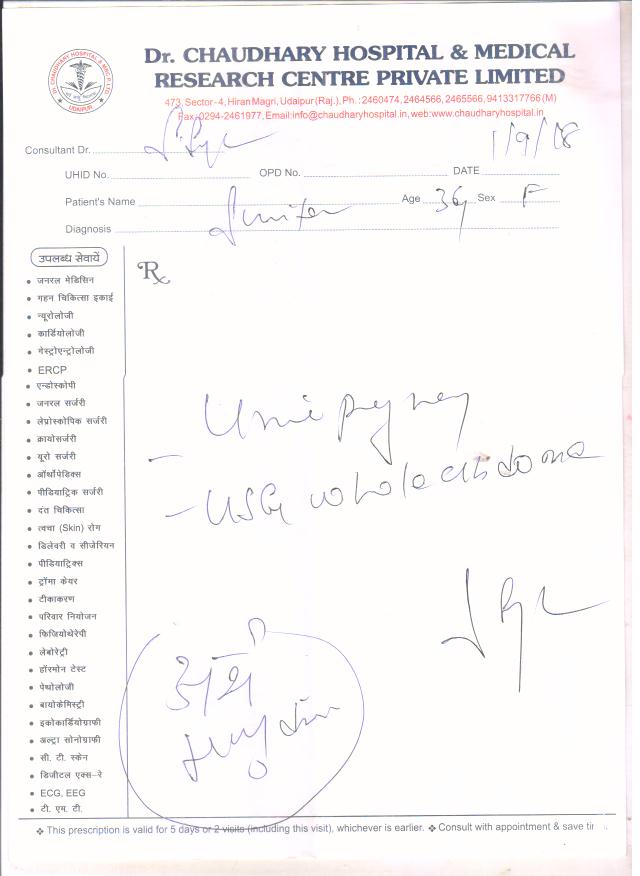 Dr. CHAUDHARY HOSPITAL & MEDICAL
RESEARCH CENTRE PRIVATE LIMITED
473, Sector-4, Hiran Magri, Udaipur (Raj.), Ph. : 2460474, 2464566, 2465566, 9413317766 (M)
Fax: 0294-2461977, Email:info@chaudharyhospital.in, web:www.chaudharyhospital.in
Consultant Dr.
UHID No. OPD No. DATE
Patient's Name Age 36y Sex F
Diagnosis
उपलब्ध सेवायें
Rx
• जनरल मेडिसिन
• गहन चिकित्सा इकाई
• न्यूरोलोजी
• कार्डियोलोजी
• गेस्ट्रोएन्ट्रोलोजी
• ERCP
• एन्डोस्कोपी
• जनरल सर्जरी
• लेप्रोस्कोपिक सर्जरी
• क्रायोसर्जरी
• यूरो सर्जरी
• ऑर्थोपेडिक्स
• पीडियाट्रिक सर्जरी
• दंत चिकित्सा
• त्वचा (Skin) रोग
• डिलेवरी व सीजेरियन
• पीडियाट्रिक्स
• ट्रॉमा केयर
• टीकाकरण
• परिवार नियोजन
• फिजियोथेरेपी
• लेबोरेट्री
• हॉरमोन टेस्ट
• पेथोलोजी
• बायोकेमिस्ट्री
• इकोकार्डियोग्राफी
• अल्ट्रा सोनोग्राफी
• सी. टी. स्केन
• डिजीटल एक्स-रे
• ECG, EEG
• टी. एम. टी.
- USG whole abdome
❖ This prescription is valid for 5 days or 2 visits (including this visit), whichever is earlier. ❖ Consult with appointment & save